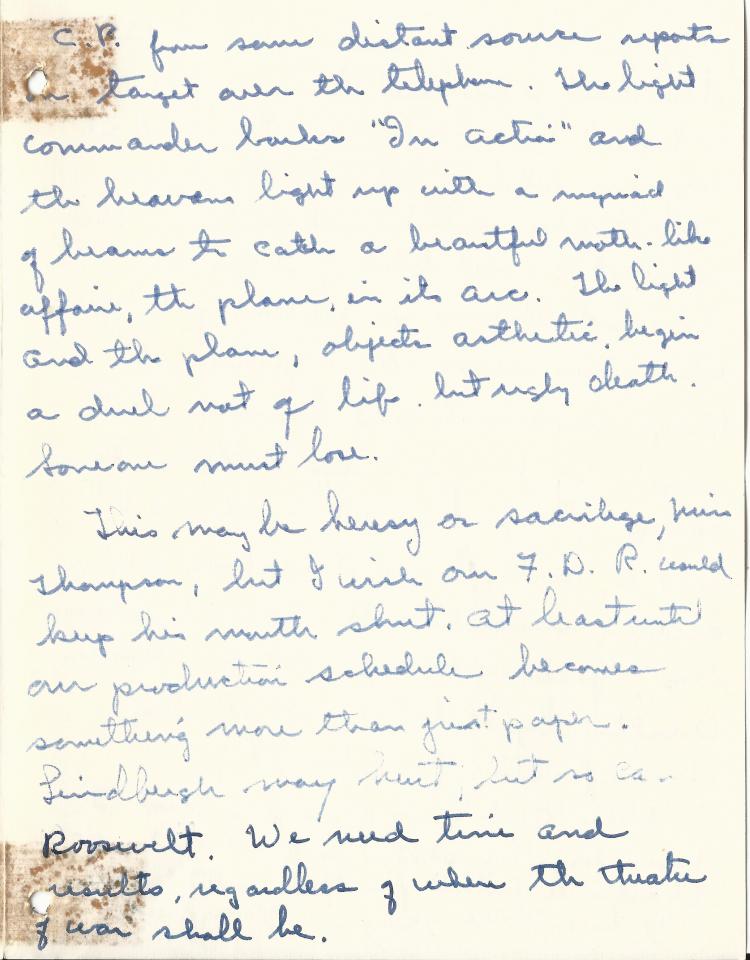 C.P. from some distant source reports
on target over the telephone. The light
commander barks "In action" and
the heavens light up with a myriad
of beams to catch a beautiful moth-like
affair, the plane, in its arc. The light
and the plane, objects aesthetic, begin
a duel not of life but ugly death.
Someone must lose.
This may be heresy or sacrilege, Miss
Thompson, but I wish our F.D.R. would
keep his mouth shut. At least until
our production schedule becomes
something more than just paper.
Lindbergh may hurt, but so can
Roosevelt. We need time and
results, regardless of where the theatre
of war shall be.